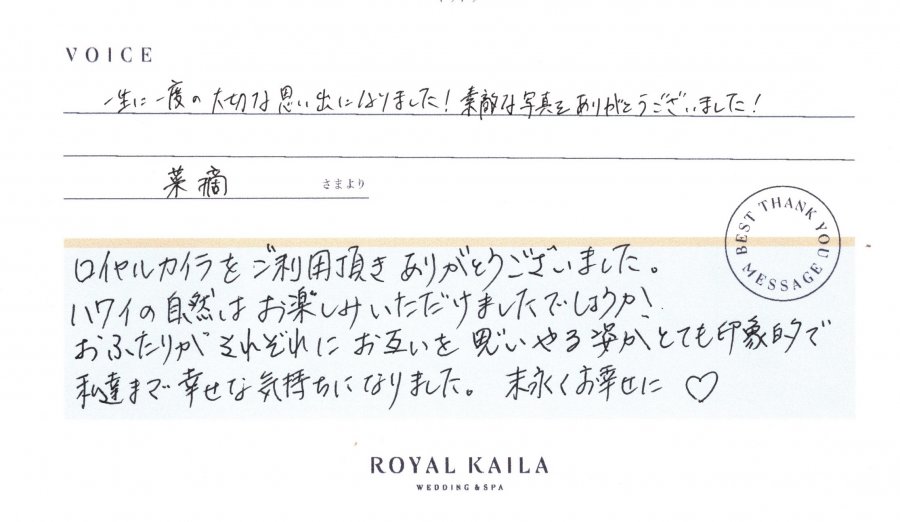 VOICE
一生に一度の大切な思い出になりました！素敵な写真をありがとうございました！
菜摘 さまより
BEST THANK YOU MESSAGE
ロイヤルカイラをご利用頂きありがとうございました。
ハワイの自然はお楽しみいただけましたでしょうか！
おふたりがそれぞれにお互いを思いやる姿がとても印象的で
私達まで幸せな気持ちになりました。 末永くお幸せに♡
ROYAL KAILA
WEDDING & SPA